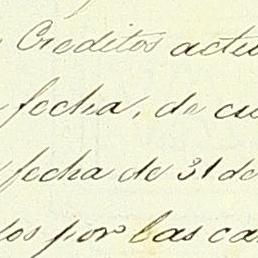 Creditos actu
fecha, de cu
fecha de 31 de
los por las can